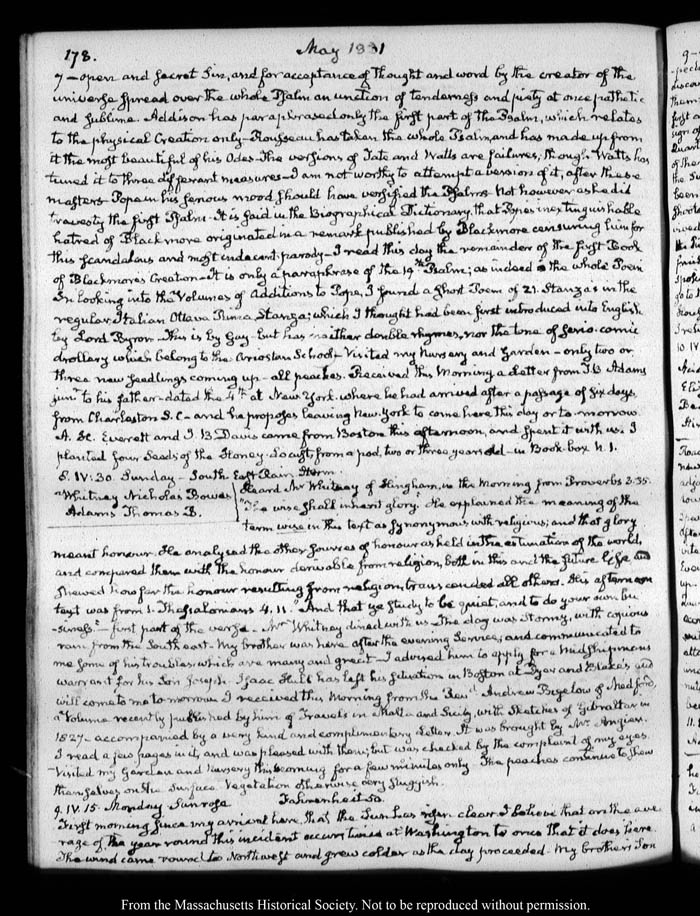 178. May 1831
7 – open and secret Sin, and for acceptance of thought and word by the creator of the
universe spread over the whole Psalm an unction of tenderness and piety at once pathetic
and sublime. Addison has paraphrased only the first part of the Psalm, which relates
to the physical Creation only – Rousseau has taken the whole Psalm and has made up from
it the most beautiful of his Odes – The versions of Tate and Watts are failures, though Watts has
tuned it to three different measures – I am not worthy to attempt a version of it, after these
masters Pope in his serious mood should have versified the Psalms Not however as he did
travesty the first Psalm – It is said in the Biographical Dictionary, that Popes inextinguishable
hatred of Blackmore originated in a remark published by Blackmore censuring him for
this scandalous and most indecent parody – I read this day the remainder of the first Book
of Blackmores Creation – It is only a paraphrase of the 19th Psalm; as indeed is the whole Poem
In looking into the Volumes of Additions to Pope, I found a short Poem of 21. Stanza's in the
regular Italian Ottava Rima Stanza; which I thought had been first introduced into English
by Lord Byron – This is by Gay – but has neither double rhymes, nor the tone of serio-comic
drollery which belong to the Ariostan School – Visited my Nursery and Garden – only two or
three new seedlings coming up – all peaches. Received this Morning a Letter from J. Q Adams
junr to his father – dated the 4th at New York. where he had arrived after a passage of six days,
from Charleston S. C – and he proposes leaving New York to come here this day or to-morrow.
A. H. Everett and I. P. Davis came from Boston this afternoon, and spent it with us. I
planted four Seeds of the Honey-Locust from a pod, two or three years old – in Book-box N. 1.
8. IV: 30. Sunday – South East Rain Storm.
Whitney Nicholas Bowes Heard Mr Whitney of Hingham, in the Morning from Proverbs 3:35.
Adams Thomas B. "The wise shall inherit glory." He explained the meaning of the
term wise in this text as synonymous with religious; and that glory
meant honour. He analysed the other sources of honour as held in the estimation of the world,
and compared them with the honour derivable from religion, both in this and the future life, and
shewed how far the honour resulting from religion, transcended all others. His afternoon
text was from 1. Thessalonians 4. 11. "And that ye study to be quiet, and to do your own bu
-siness" – first part of the verse – Mr Whitney dined with us – The day was stormy, with copious
rain from the South east – My brother was here after the evening Service; and communicated to
me some of his troubles, which are many and great – I advised him to apply for a Midshipmans
warrant for his Son Joseph. Isaac Hull has left his situation in Boston at Dyer and Blake's and
will come to me to morrow. I received this Morning from the Revd Andrew Bigelow of Medford,
a Volume recently published by him of Travels in Malta and Sicily, with Sketches of Gibraltar in
1827 – accompanied by a very kind and complimentary Letter. It was brought by Mr Angier.
I read a few pages in it, and was pleased with them; but was checked by the complaint of my eyes.
Visited my Garden and Nursery this morning for a few minutes only – The peaches continue to shew
themselves on the surface Vegetation otherwise very sluggish.
9. IV. 15. Monday Sun rose. Fahrenheit 50.
First morning since my arrival here, that the Sun has risen clear. I believe that on the ave
rage of the year round this incident occurs twice at Washington to once that it does here
The wind came round to Northwest and grew colder as the day proceeded – My brothers Son
From the Massachusetts Historical Society. Not to be reproduced without permission.